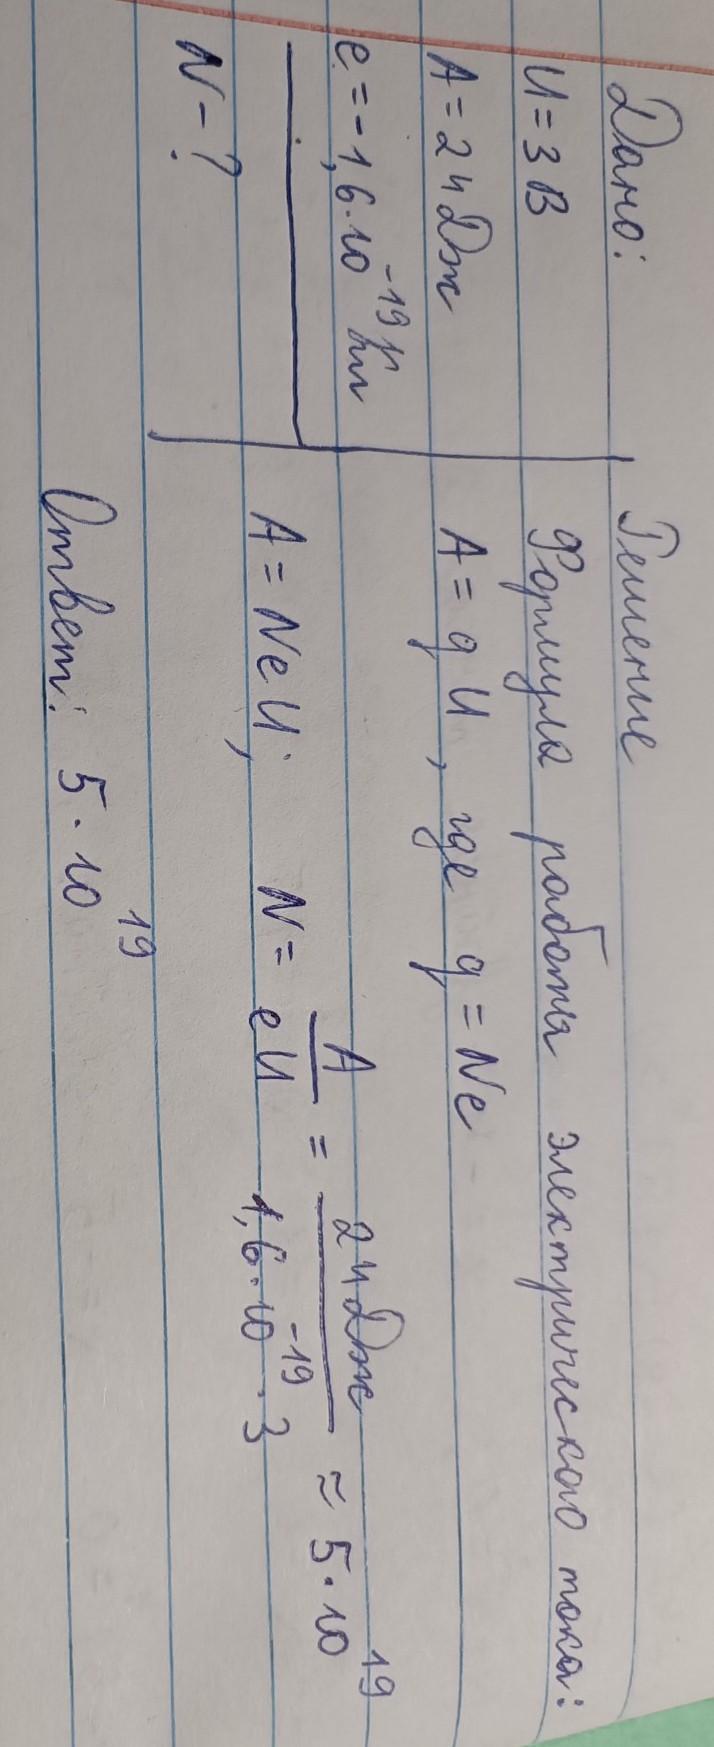 Дано:
U = 3 В
A = 24 Дж
e = -1,6·10⁻¹⁹ Кл
N - ?
Решение
Формула работы электрического тока:
A = qU, где q = Ne
A = NeU; N = A/eU = 24 Дж/1,6·10⁻¹⁹·3 ≈ 5·10¹⁹
Ответ: 5·10¹⁹